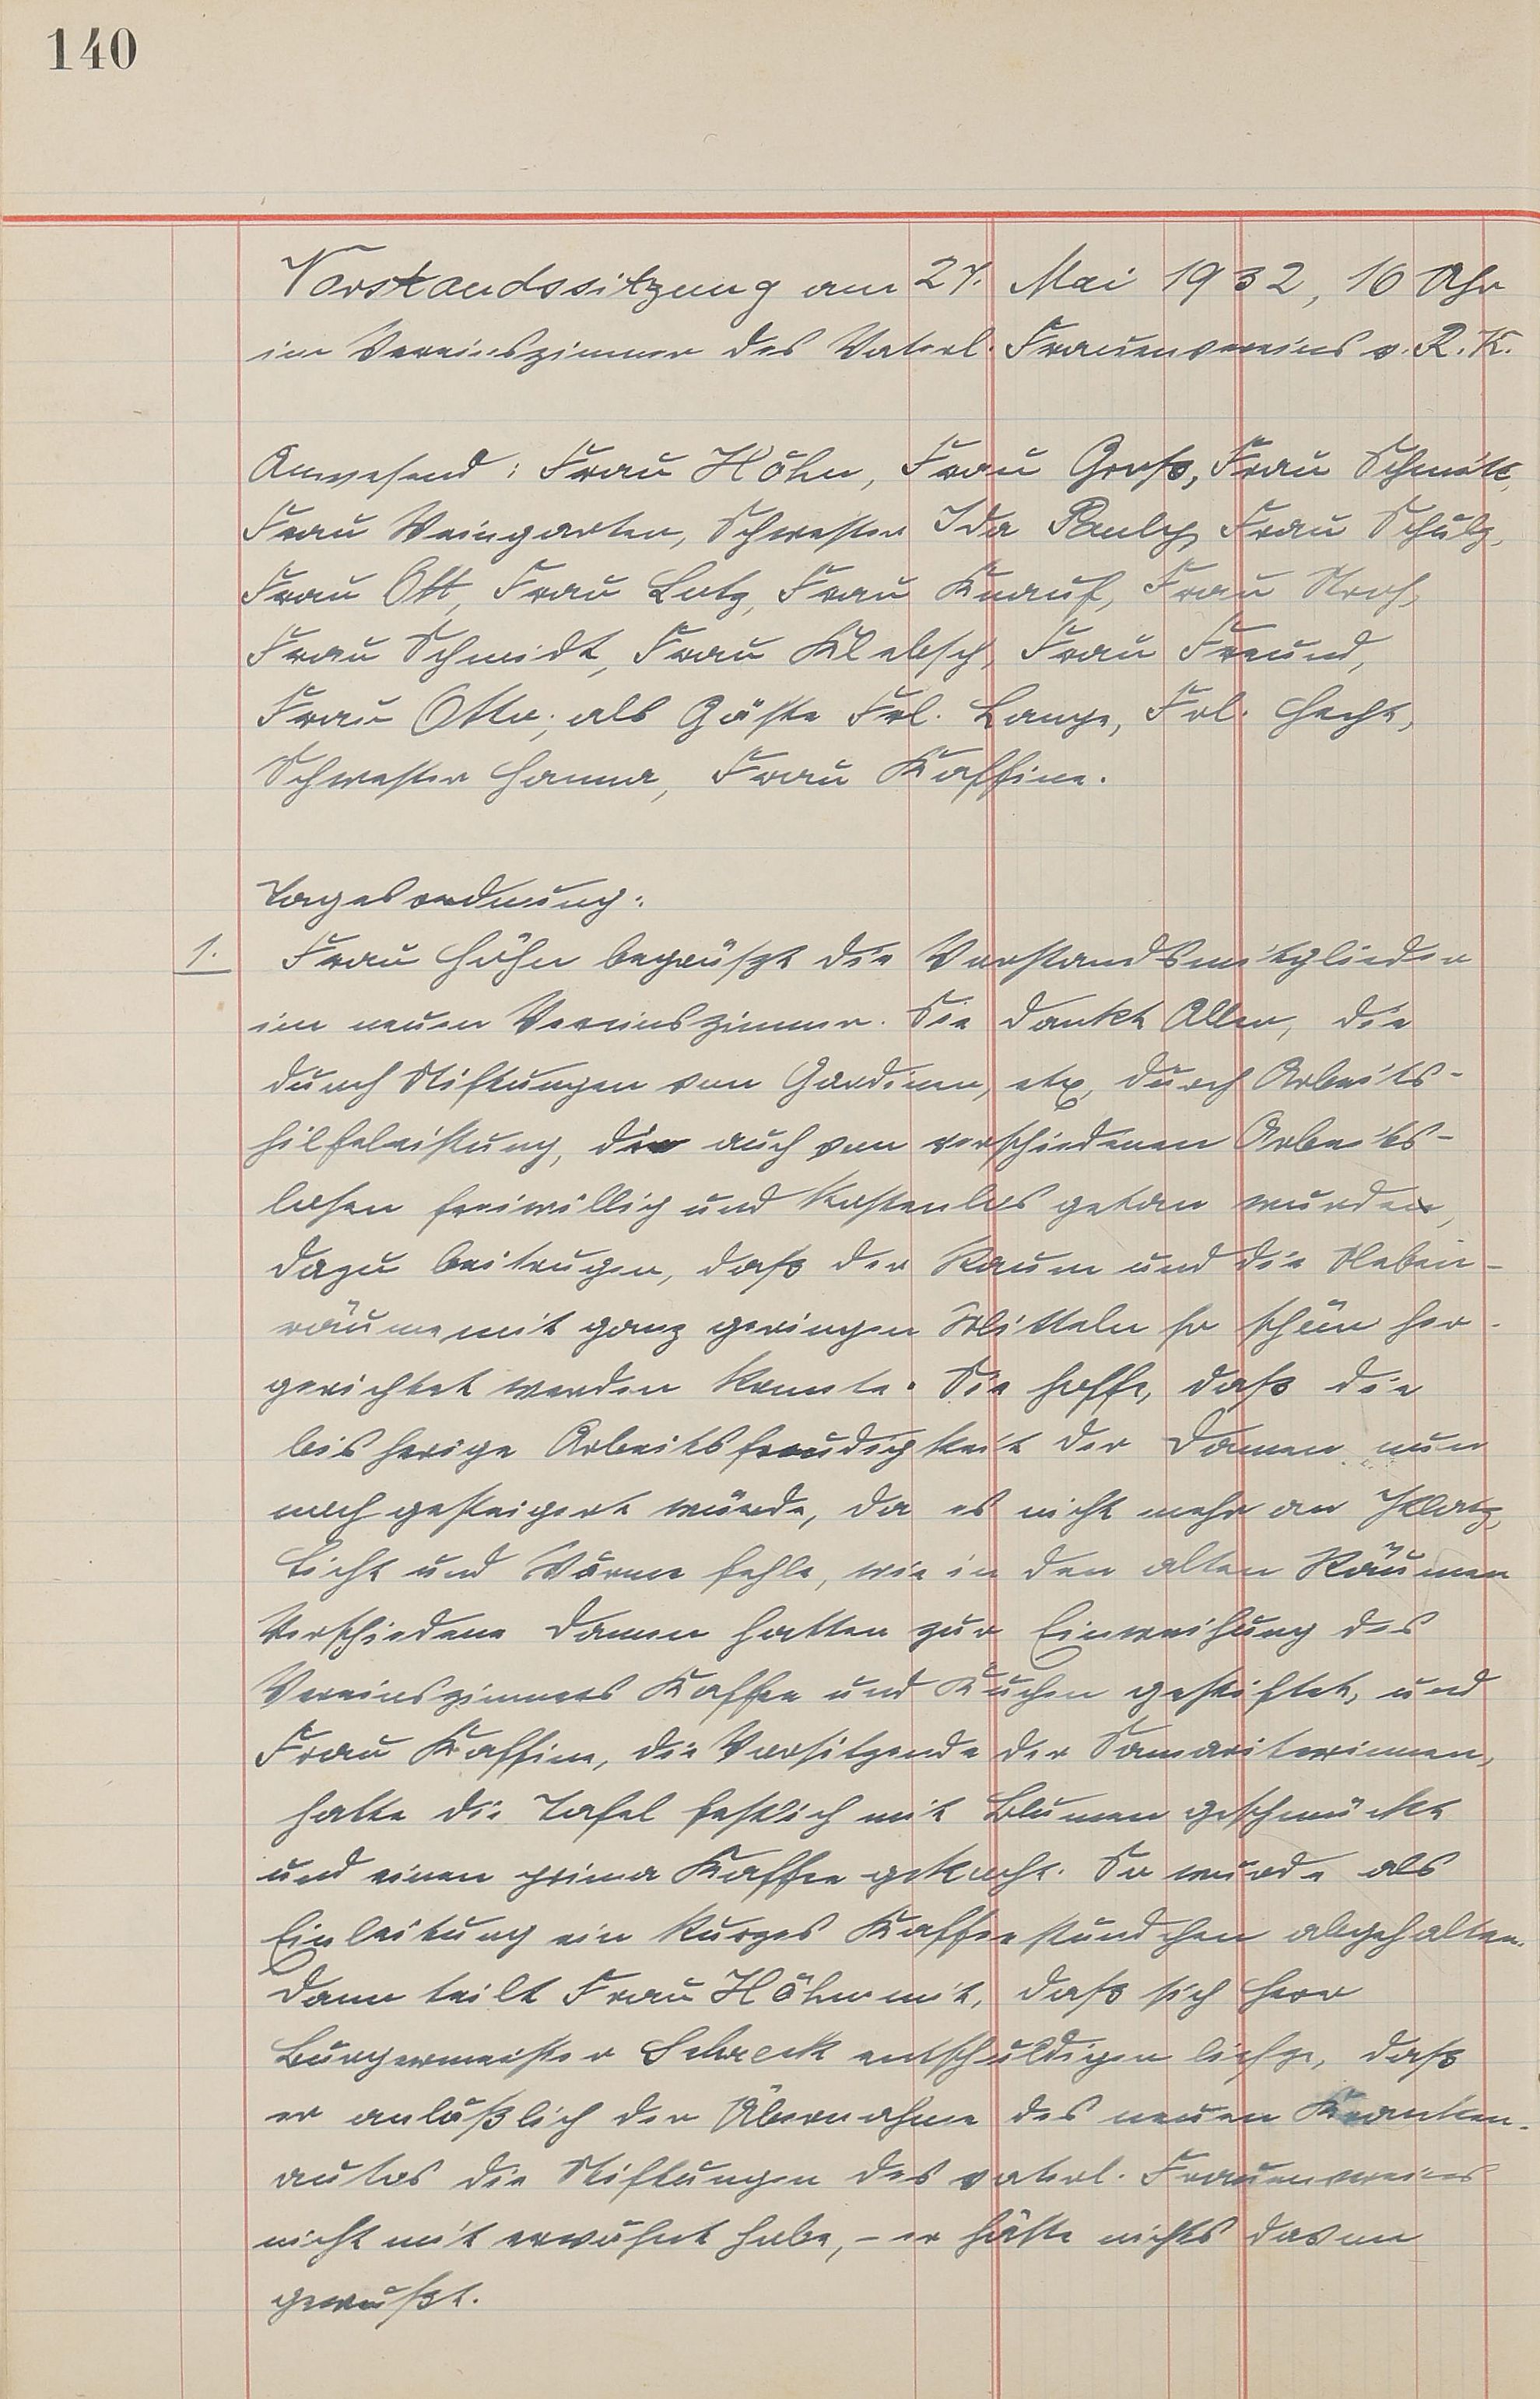 140
Vorstandssitzung am 27. Mai 1932, 16 Uhr
im Vereinszimmer des Vaterl. Frauenvereins v. R. K.
Anwesend: Frau Höhn, Frau Groß, Frau Schmitt,
Frau Weingarten, Schwester Ida Pauly, Frau Schulz,
Frau Ott, Frau Lutz, Frau Knauf, Frau Stroh,
Frau Schmidt, Frau Klebsch, Frau Freund,
Frau Otto, als Gäste Frl. Lange, Frl. Hecht,
Schwester Hanna, Frau Kaffine.
Tagesordnung:
1. Frau Höhn begrüßt die Vorstandsmitglieder
im neuen Vereinszimmer. Sie dankt Allen, die
durch Stiftungen von Gardinen, etc, durch Arbeits-
hilfeleistung, die auch von verschiedenen Arbeits-
losen freiwillig und kostenlos getan wurden,
dazu beitrugen, daß der Raum und die Neben-
räume mit ganz geringen Mitteln so schön her-
gerichtet werden konnte. Sie hoffe, daß die
bisherige Arbeitsfreudigkeit der Damen nun
noch gesteigert würde, da es nicht mehr an Platz,
Licht und Wärme fehle, wie in den alten Räumen
Verschiedene Damen hatten zur Einweihung des
Vereinszimmers Kaffee und Kuchen gestiftet, und
Frau Kaffine, die Vorsitzende der Samariterinnen,
hatte die Tafel festlich mit Blumen geschmückt
und einen prima Kaffee gekocht. So wurde als
Einleitung ein kurzes Kaffeestündchen abgehalten.
Dann teilt Frau Höhn mit, daß sich Herr
Bürgermeister Schreck entschuldigen ließe, daß
er anläßlich der Übernahme des neuen Kranken-
autos die Stiftungen des vaterl. Frauenvereins
nicht mit erwähnt habe, - er hätte nichts davon
gewußt.